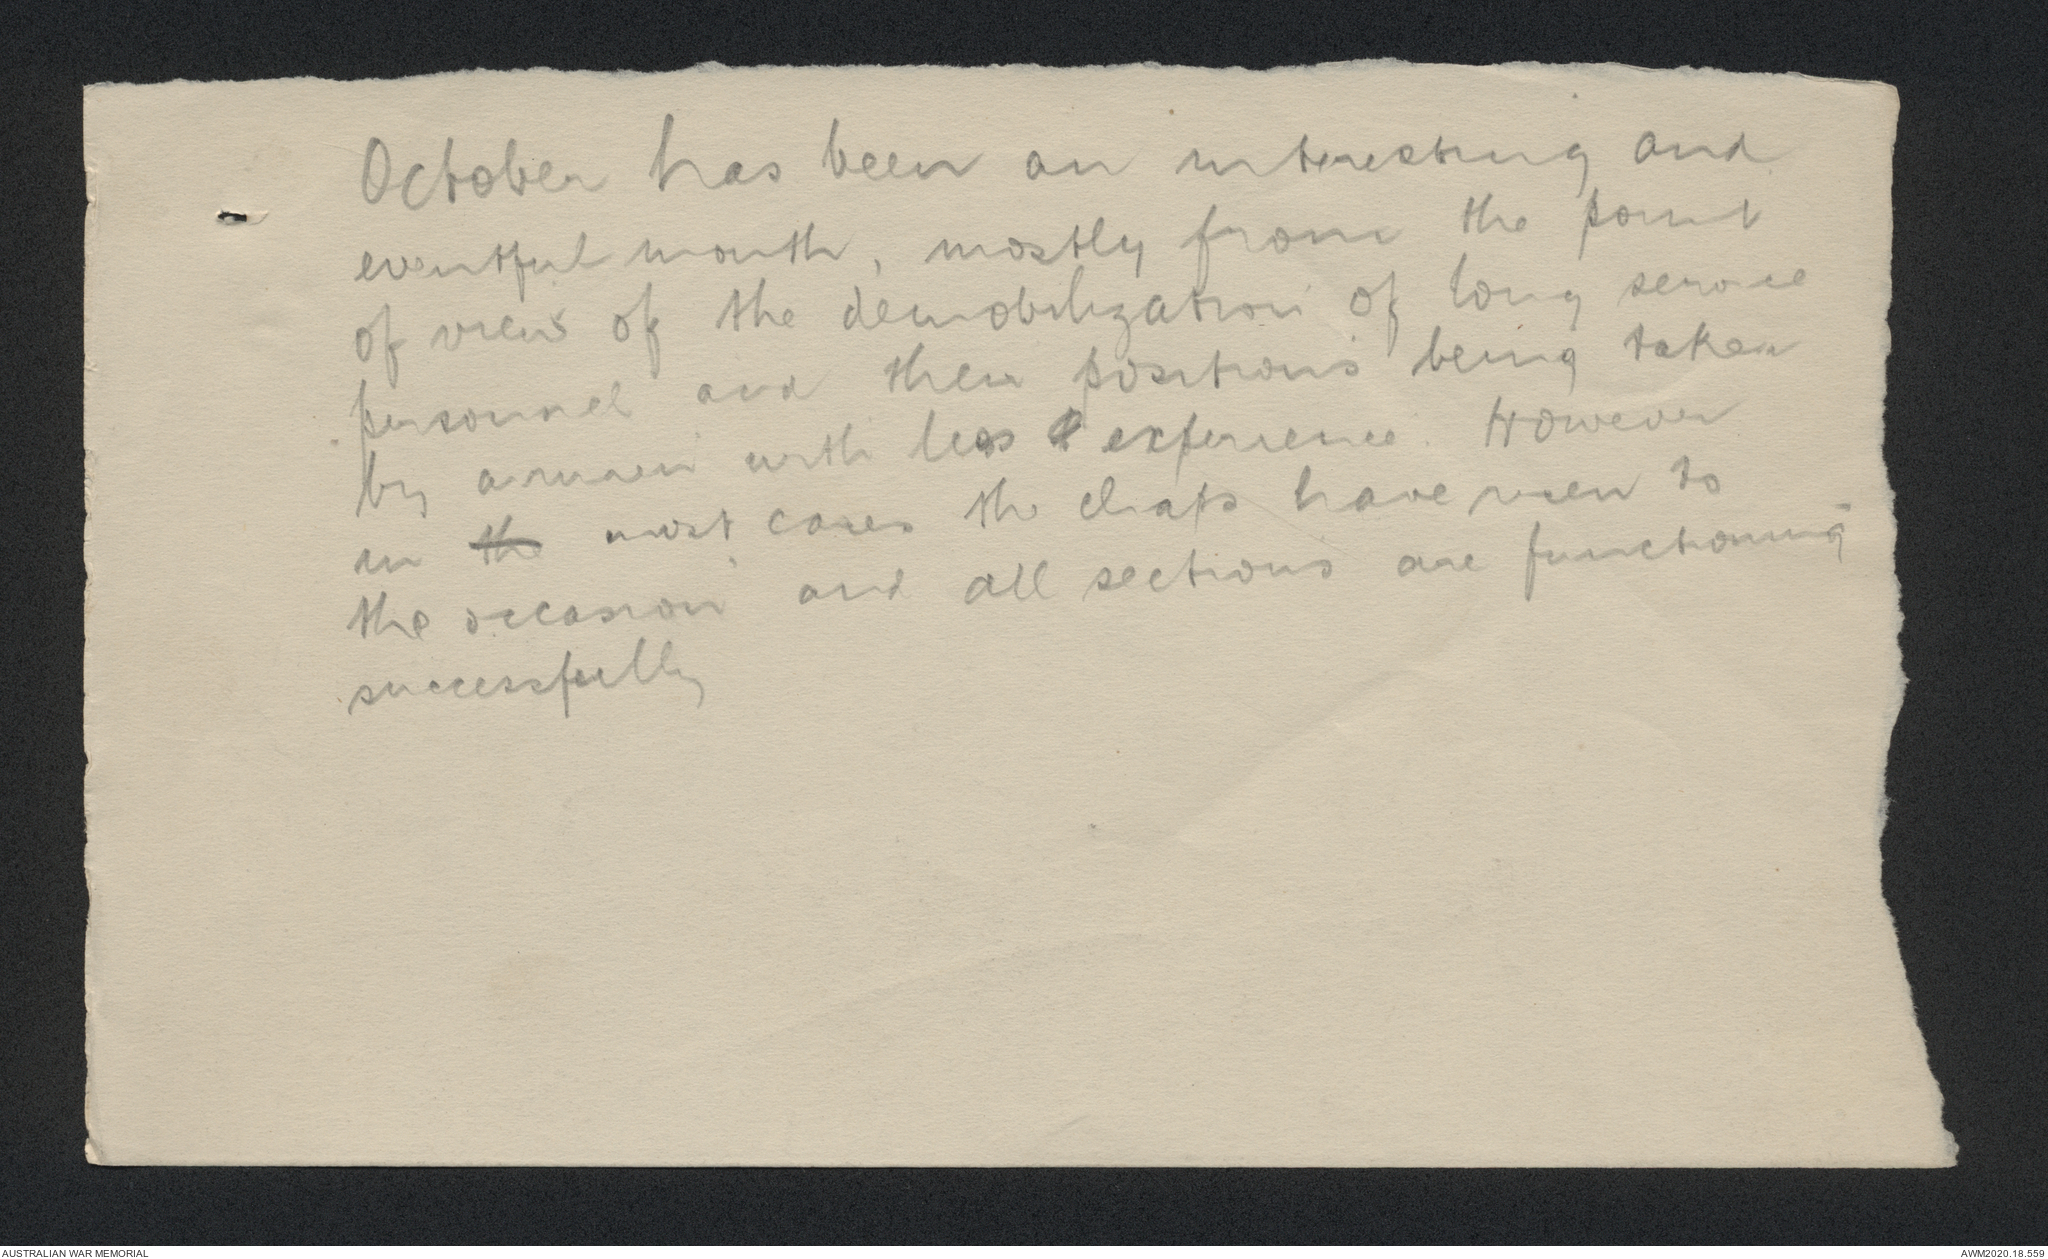 October has been an interesting and
eventful month, mostly from the point
of view of the demobilization of long service
personnel and their positions being taken
by airmen with less experience. However
in the most cases the chaps have risen to
the occasion and all sections are functioning
successfully
AUSTRALIAN WAR MEMORIAL
AWM2020.18.559